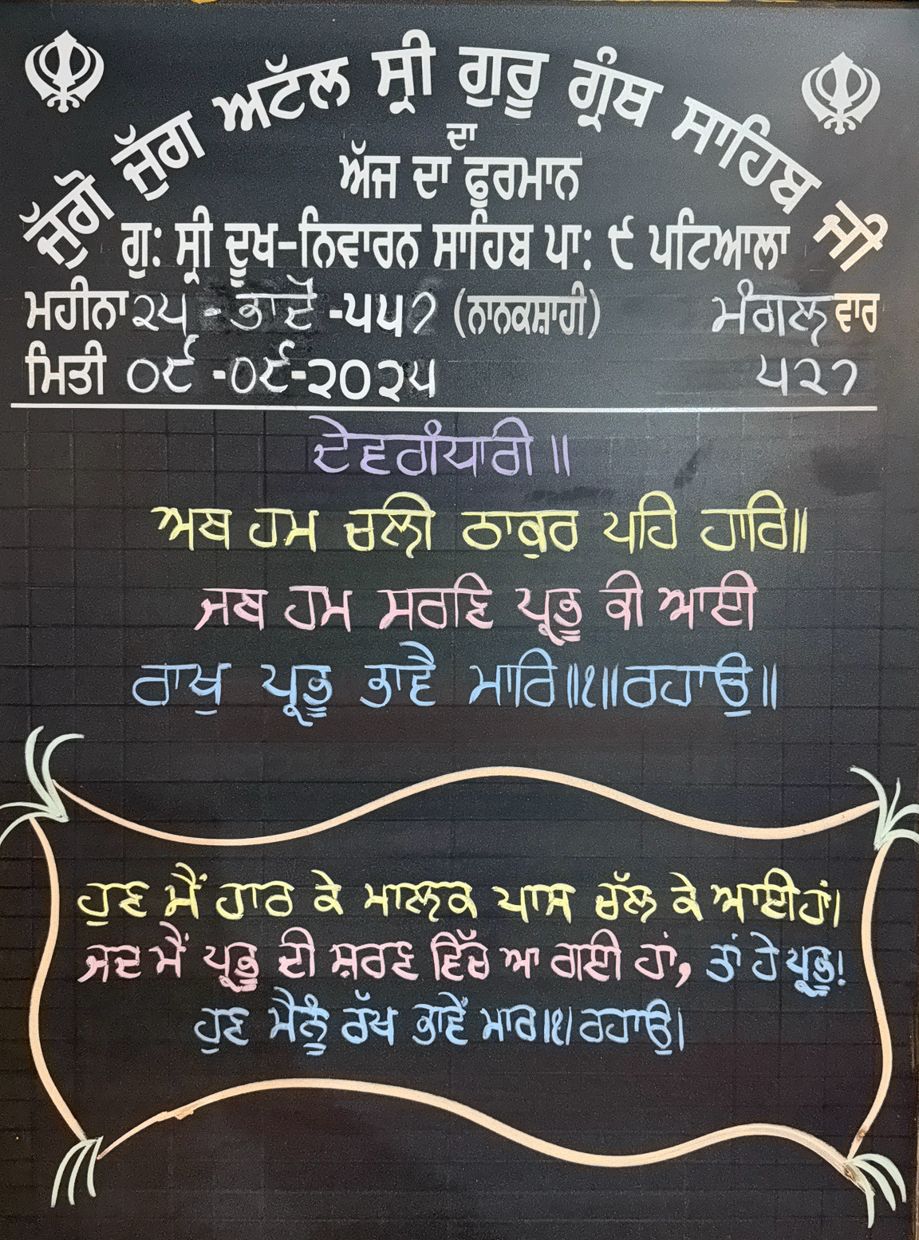 ਜੁੱਗੋ ਜੁੱਗ ਅਟੱਲ ਸ੍ਰੀ ਗੁਰੂ ਗ੍ਰੰਥ ਸਾਹਿਬ ਜੀ
ਦਾ
ਅੱਜ ਦਾ ਫੁਰਮਾਨ
ਗੁ: ਸ੍ਰੀ ਦੂਖ-ਨਿਵਾਰਨ ਸਾਹਿਬ ਪਾ: ੯ ਪਟਿਆਲਾ
ਮਹੀਨਾ ੨੫ - ਭਾਦੋਂ -੫੫੭ (ਨਾਨਕਸ਼ਾਹੀ) ਮੰਗਲਵਾਰ
ਮਿਤੀ ੦੯ -੦੯-੨੦੨੫ ੫੨੭
ਦੇਵਗੰਧਾਰੀ ॥
ਅਬ ਹਮ ਚਲੀ ਠਾਕੁਰ ਪਹਿ ਹਾਰਿ॥
ਜਬ ਹਮ ਸਰਣਿ ਪ੍ਰਭੂ ਕੀ ਆਈ
ਰਾਖੁ ਪ੍ਰਭੂ ਭਾਵੈ ਮਾਰਿ॥੧॥ਰਹਾਉ॥
ਹੁਣ ਮੈਂ ਹਾਰ ਕੇ ਮਾਲਕ ਪਾਸ ਚੱਲ ਕੇ ਆਈਹਾਂ।
ਜਦ ਮੈਂ ਪ੍ਰਭੂ ਦੀ ਸ਼ਰਣ ਵਿੱਚ ਆ ਗਈ ਹਾਂ, ਤਾਂ ਹੇ ਪ੍ਰਭੂ!
ਹੁਣ ਮੈਨੂੰ ਰੱਖ ਭਾਵੇਂ ਮਾਰ॥੧।ਰਹਾਉ।